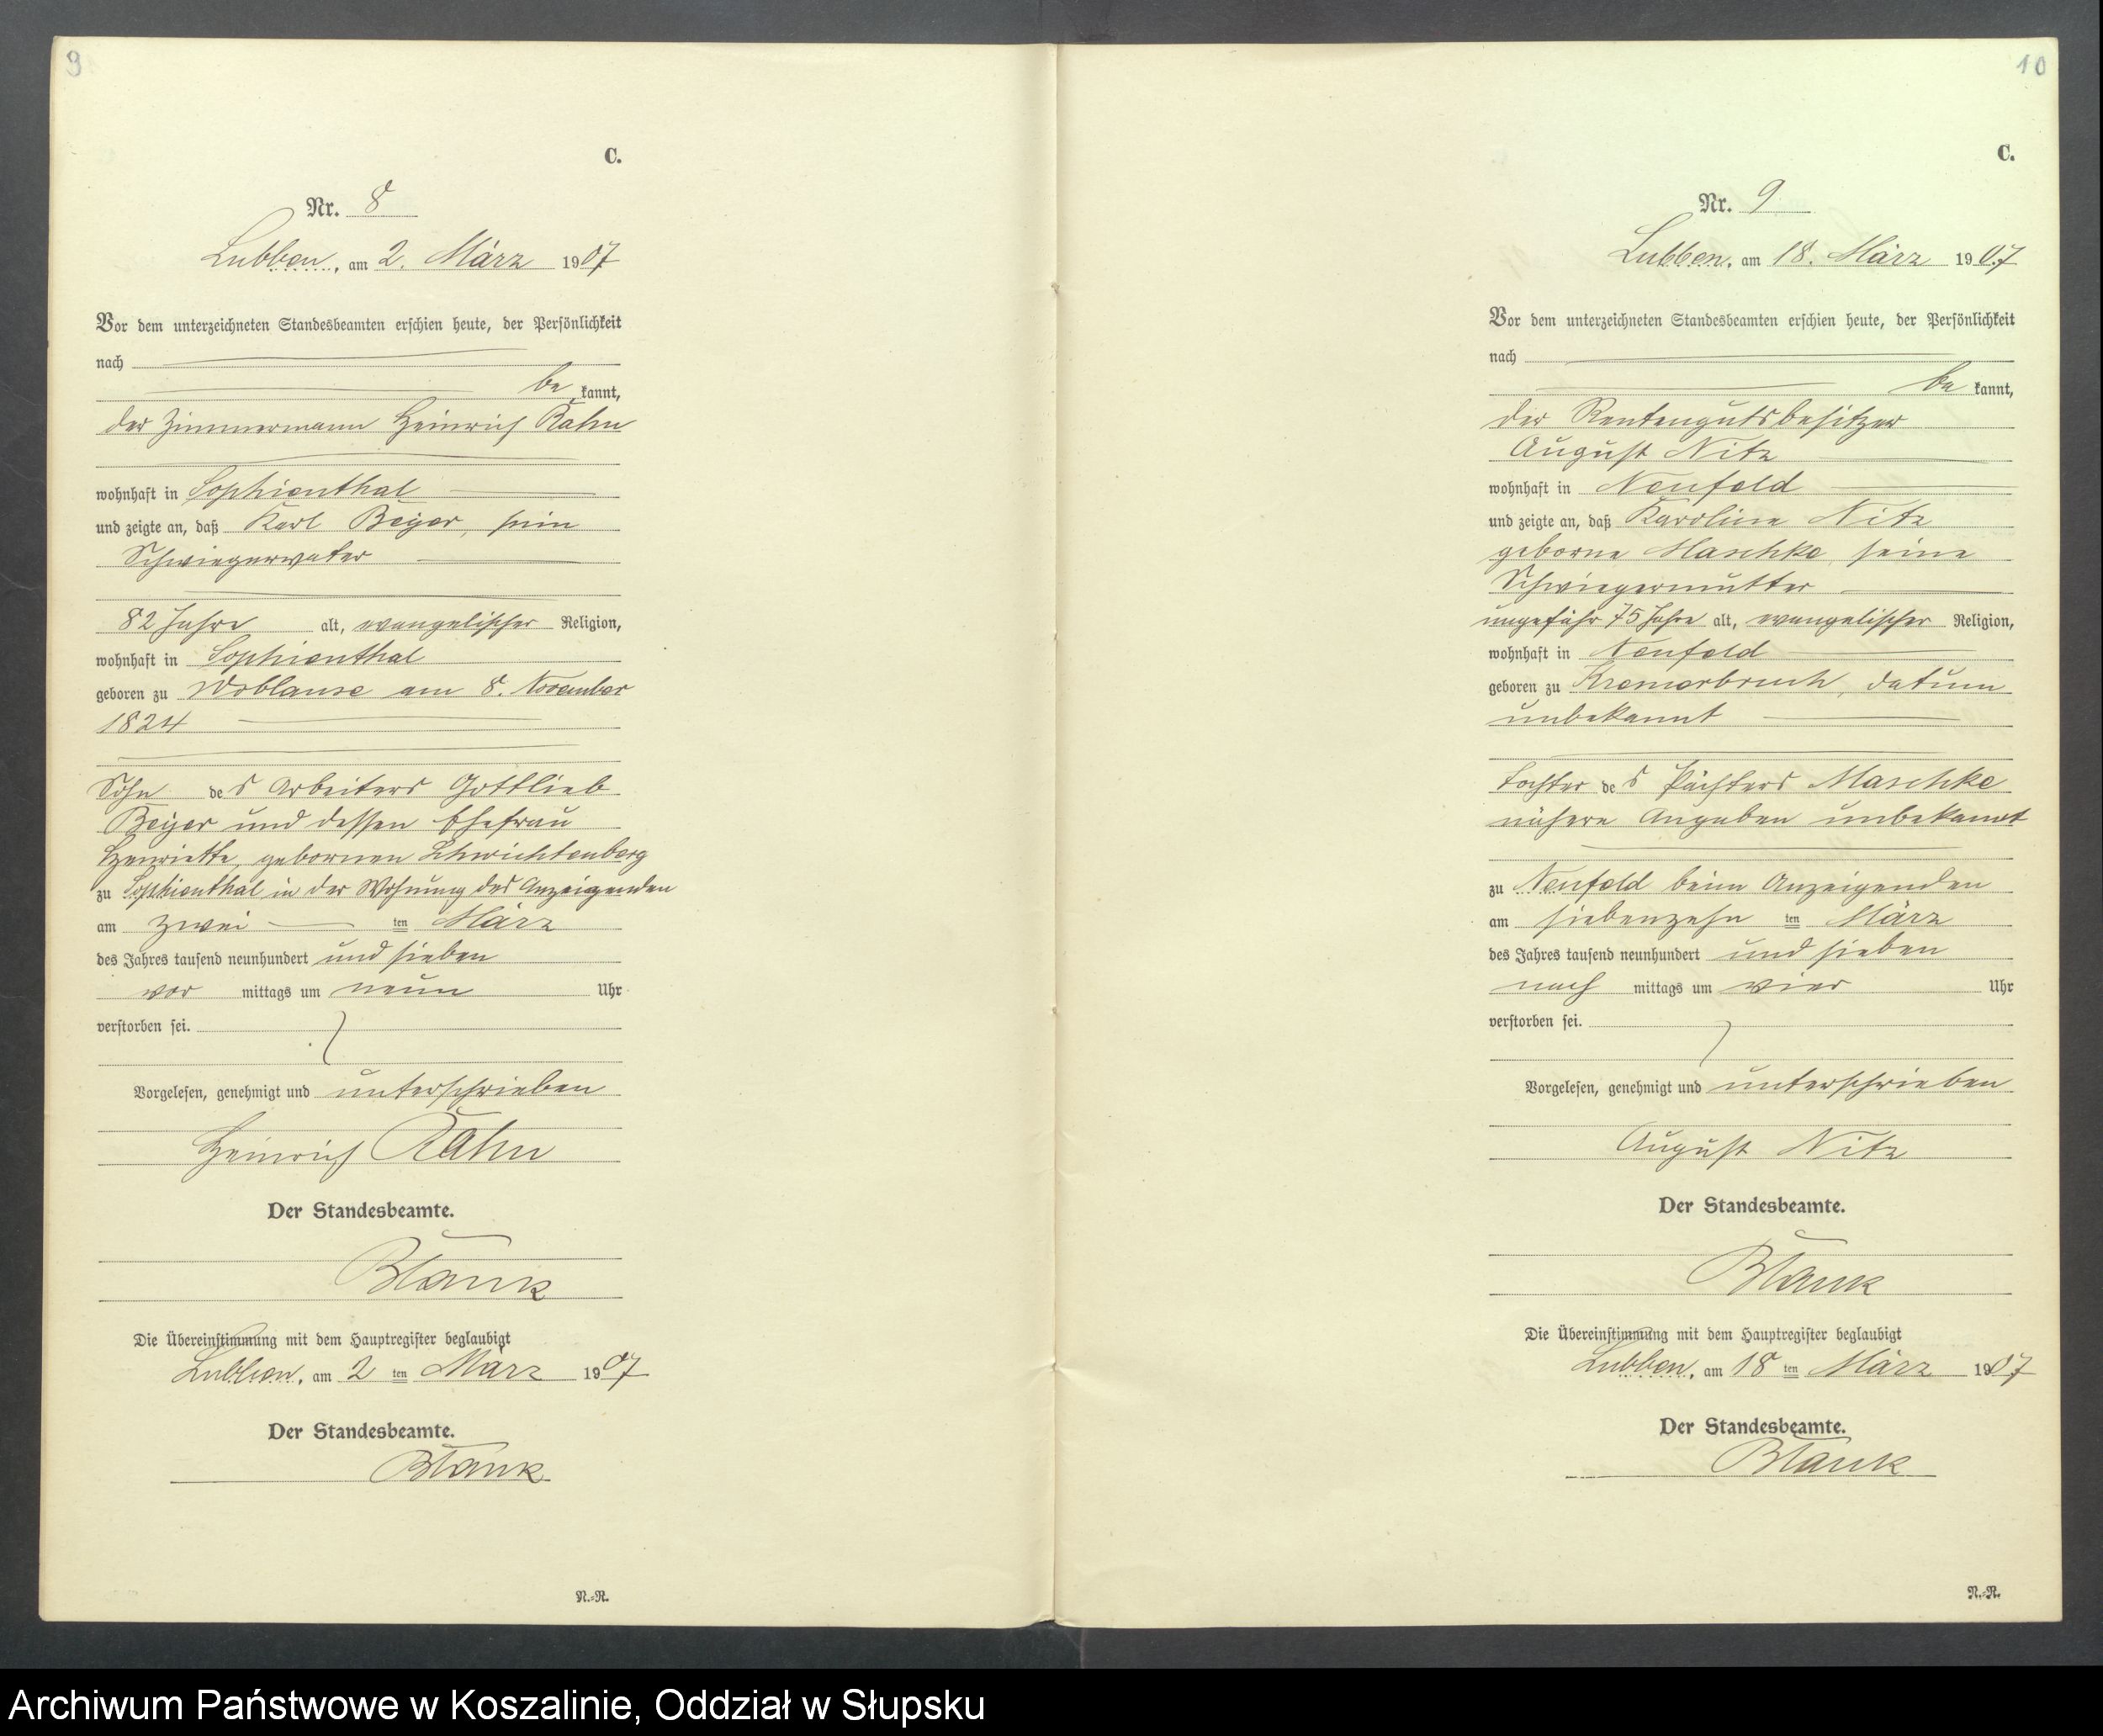 9
C.
Nr. 8
Lubben, am 2. März 1907
Vor dem unterzeichneten Standesbeamten erschien heute, der Persönlichkeit
nach
be kannt,
der Zimmermann Heinrich Rahn
wohnhaft in Sophienthal
und zeigte an, daß Karl Beyer, sein
Schwiegervater
82 Jahre alt, evangelischer Religion,
wohnhaft in Sophienthal
geboren zu Woblanse am 8. November
1824
Sohn des Arbeiters Gottlieb
Beyer und dessen Ehefrau
Henriette, gebornen Schwichtenberg
zu Sophienthal in der Wohnung des Anzeigenden
am zwei ten März
des Jahres tausend neunhundert und sieben
vor mittags um neun Uhr
verstorben sei.
Vorgelesen, genehmigt und unterschrieben
Heinrich Rahn
Der Standesbeamte.
Blank
Die Übereinstimmung mit dem Hauptregister beglaubigt
Lubben, am 2 ten März 1907
Der Standesbeamte.
Blank
N.-R.
10
C.
Nr. 9
Lubben, am 18. März 1907
Vor dem unterzeichneten Standesbeamten erschien heute, der Persönlichkeit
nach
be kannt,
der Rentengutsbesitzer
August Nitz
wohnhaft in Neufeld
und zeigte an, daß Karoline Nitz
geborne Maschke, seine
Schwiegermutter
ungefähr 75 Jahre alt, evangelischer Religion,
wohnhaft in Neufeld
geboren zu Kremerbruch, datum
unbekannt
Tochter des Pächters Maschke
nähere Angaben unbekannt
zu Neufeld beim Anzeigenden
am siebenzehn ten März
des Jahres tausend neunhundert und sieben
nach mittags um vier Uhr
verstorben sei.
Vorgelesen, genehmigt und unterschrieben
August Nitz
Der Standesbeamte.
Blank
Die Übereinstimmung mit dem Hauptregister beglaubigt
Lubben, am 18 ten März 1907
Der Standesbeamte.
Blank
N.-R.
Archiwum Państwowe w Koszalinie, Oddział w Słupsku